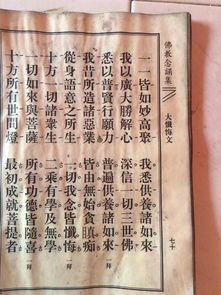 佛教念誦集
大懺悔文
七十
一一皆如妙高聚 我悉供養諸如來
我以廣大勝解心 深信一切三世佛
悉以普賢行願力 普遍供養諸如來 一拜
我昔所造諸惡業 皆由無始貪瞋痴
從身語意之所生 一切我今皆懺悔 一拜
十方一切諸眾生 二乘有學及無學
一切如來與菩薩 所有功德皆隨喜 一拜
十方所有世間燈 最初成就菩提者